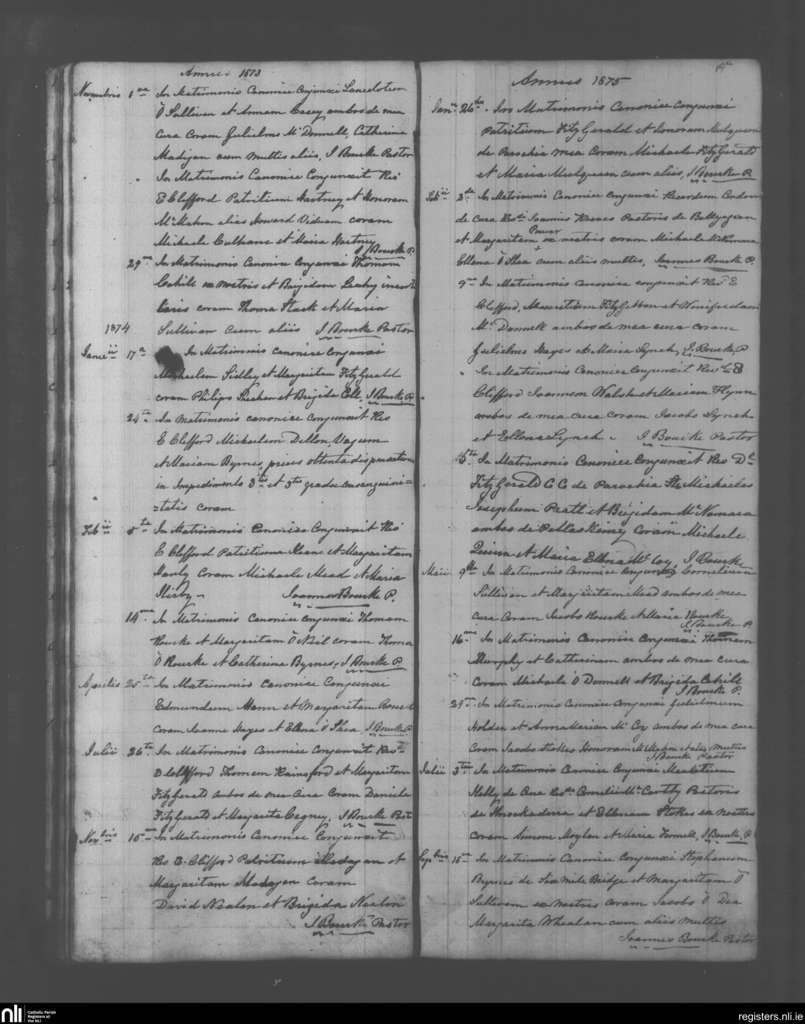 Annus 1873
Novembris 1ma In Matrimonio Canonice Conjunxi
O Sullivan et Annam Casey ambos de mea
cura Coram Gulielmo Mc Donnell, Catherina
Madigan cum multis aliis, J Bourke Pastor
" In Matrimonio Canonice Conjunxit Revs
E Clifford Patritium Hartney et Honoram
McMahon alias Howard Viduam coram
Michaele Culhane et Maria Hartney
J Bourke P.
29na In Matrimonio Canonice Conjunxi Thomam
Cahill ex nostris et Brigidam Leahy
coram Thoma Stack et Maria
1874 Sullivan Cum aliis J Bourke Pastor
17a In Matrimonio canonice conjunxi
Michaelem et Margaritam FitzGerald
coram Philipo et Brigida J Bourke P.
24ta In matrimonio canonice conjunxit Revs
E Clifford Michaelem Dillon, Vagum
et Mariam Byrnes, prius obtenta dispensatione
in Impedimento 3tio et 3tio gradu consanguini
=tatis coram
Febii 5ta In Matrimonio Canonice Conjunxit Revs
E Clifford Patritium Keane et Margaritam
Hanly Coram Michaele Mead et Maria
Joannes Bourke P.
14ta In Matrimonio Canonice conjunxi Thomam
Rourke et Margaritam O Neil coram Thoma
O Rourke et Catherina Byrnes, J Bourke P.
Aprilis 25ta In Matrimonio Canonice Conjunxi
Edmundum Hann et Margaritam
Coram Joanne Hayes et Ellena O Shea J Bourke P.
Julii 26ta In Matrimonio Canonice Conjunxit Revs
E Clifford Thomam Hainsford et Margaritam
Fitzgerald ambos de mea Cura Coram Daniele
FitzGerald et Margarita Cagney, J Bourke Past
Novbris 15ta In Matrimonio Canonice Conjunxit
Revs E. Clifford Patritium Madigan et
Margaritam Madigan coram
David Nealon et Brigida Nealon
J Bourke Pastor
Annus 1875
26ta In Matrimonio Canonice Conjunxi
Patritium FitzGerald et Honoram Mulqueen
de Parochia mea Coram Michaele FitzGerald
et Maria Mulqueen cum aliis, J Bourke P.
Febii 3ta In Matrimonio Canonice conjunxi Ricardum
de Cura Revdi Joannis Pastoris de Ballygran
Power
et Margaritam ex nostris coram Michaele McNamara
Ellena O Shea cum aliis multis, Joannes Bourke P.
9na In Matrimonio Canonice conjunxit Revs E
Clifford, Mauritium FitzGibbon et Winifredam
Mc Donnell ambos de mea cura coram
Gulielmo Hayes et Maria Lynch, J. Bourke, P
" In Matrimonio Canonice Conjunxit Revs E
Clifford Joannem Walsh et Mariam Flynn
ambos de mea cura coram Jacobo Lynch
et Ellena Lynch. J Bourke Pastor
In Matrimonio Canonice Conjunxit Revs D
FitzGerald C C de Parochia Sti Michaelis
Josephum et Brigidam McNamara
ambos de Pallaskenry Coram Michaele
Quinn et Maria Ellena McCoy, J Bourke
Maii 9ta In Matrimonio Canonice Conjunxi Cornelium
Sullivan et Margaritam Mead ambos de mea
cura Coram Jacobo Rourke et Maria Rourke
J Bourke P
16ta In Matrimonio Canonice conjunxi Thomam
Murphy et Catherinam ambos de mea cura
Coram Michaele O Donnell et Brigida Cahill
J Bourke P.
In Matrimonio Canonice Conjunxi Gulielmum
Holder et Annam Mariam McCoy ambos de mea cura
Coram Jacobo Stokes Honoram McMahon et aliis multis
J Bourke Pastor
Julii 3tia In Matrimonio Canonice Conjunxi
Kelly de Cura Revdi Cornelii McCarthy Pastoris
de Knockaderra et Ellenam Stokes ex nostris
Coram Simone Moylan et Maria Fennell, J Bourke, P.
15ta In Matrimonio Canonice Conjunxi Stephanum
Byrnes de Six Mile Bridge et Margaritam O
Sullivan ex nostris Coram Jacobo O Dea
Margarita Whealan cum aliis multis
Joannes Bourke Pastor
nli
Catholic Parish
Registers at
the NLI
registers.nli.ie